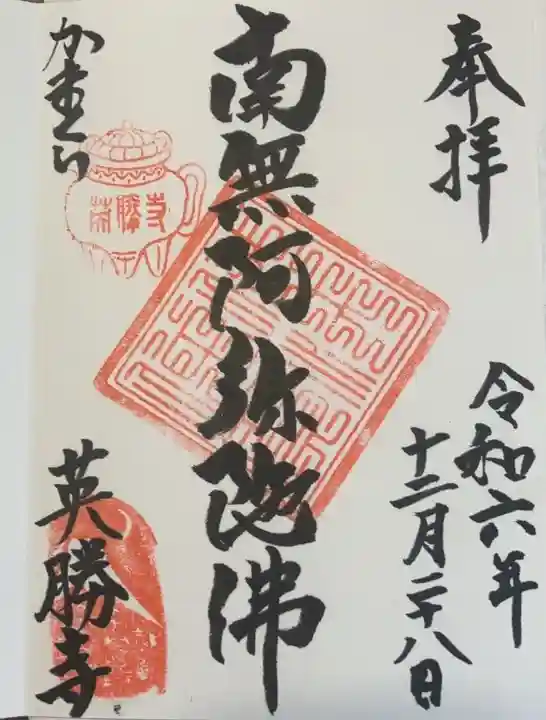 奉拝
令和六年
十二月二十八日
南無阿弥陀佛
かまくら
英勝寺
英勝寺